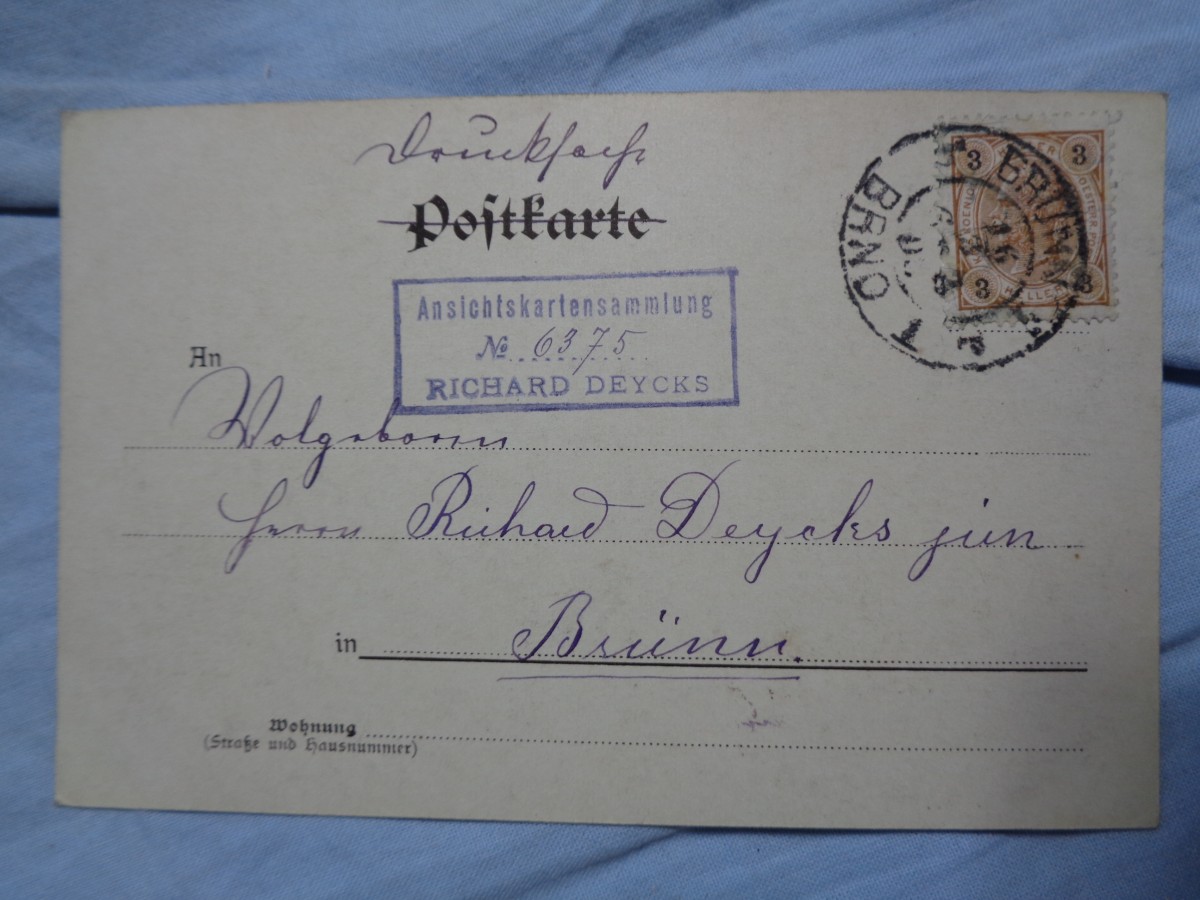 Drucksache
Postkarte
Ansichtskartensammlung
№ 6375
RICHARD DEYCKS
3 3
3 3
HELLER
BRÜNN
BRNO
1
An
Wolgeboren
Herrn Richard Deycks jun
in Brünn.
Wohnung
(Straße und Hausnummer)